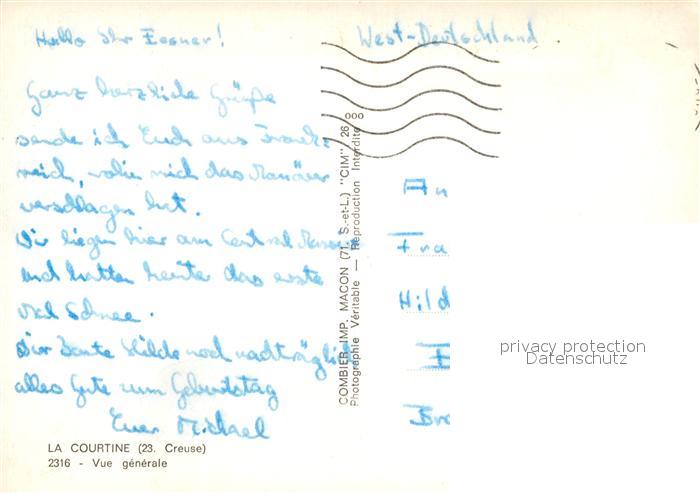 Hallo Ihr Essner!
Ganz herzliche Grüße
sende ich Euch aus Frank-
reich, wohin mich das Manöver
verschlagen hat.
Wir liegen hier am Central Massiv
und hatten heute das erste
Mal Schnee.
Dir Tante Hilde noch nachträglich
alles Gute zum Geburtstag
Euer Michael
LA COURTINE (23. Creuse)
2316 - Vue générale
COMBIER IMP. MACON (71. S.-et-L.) "CIM" 26 000
Photographie Véritable — Reproduction Interdite
West-Deutschland
An
Fra
Hild
Bre
privacy protection
Datenschutz